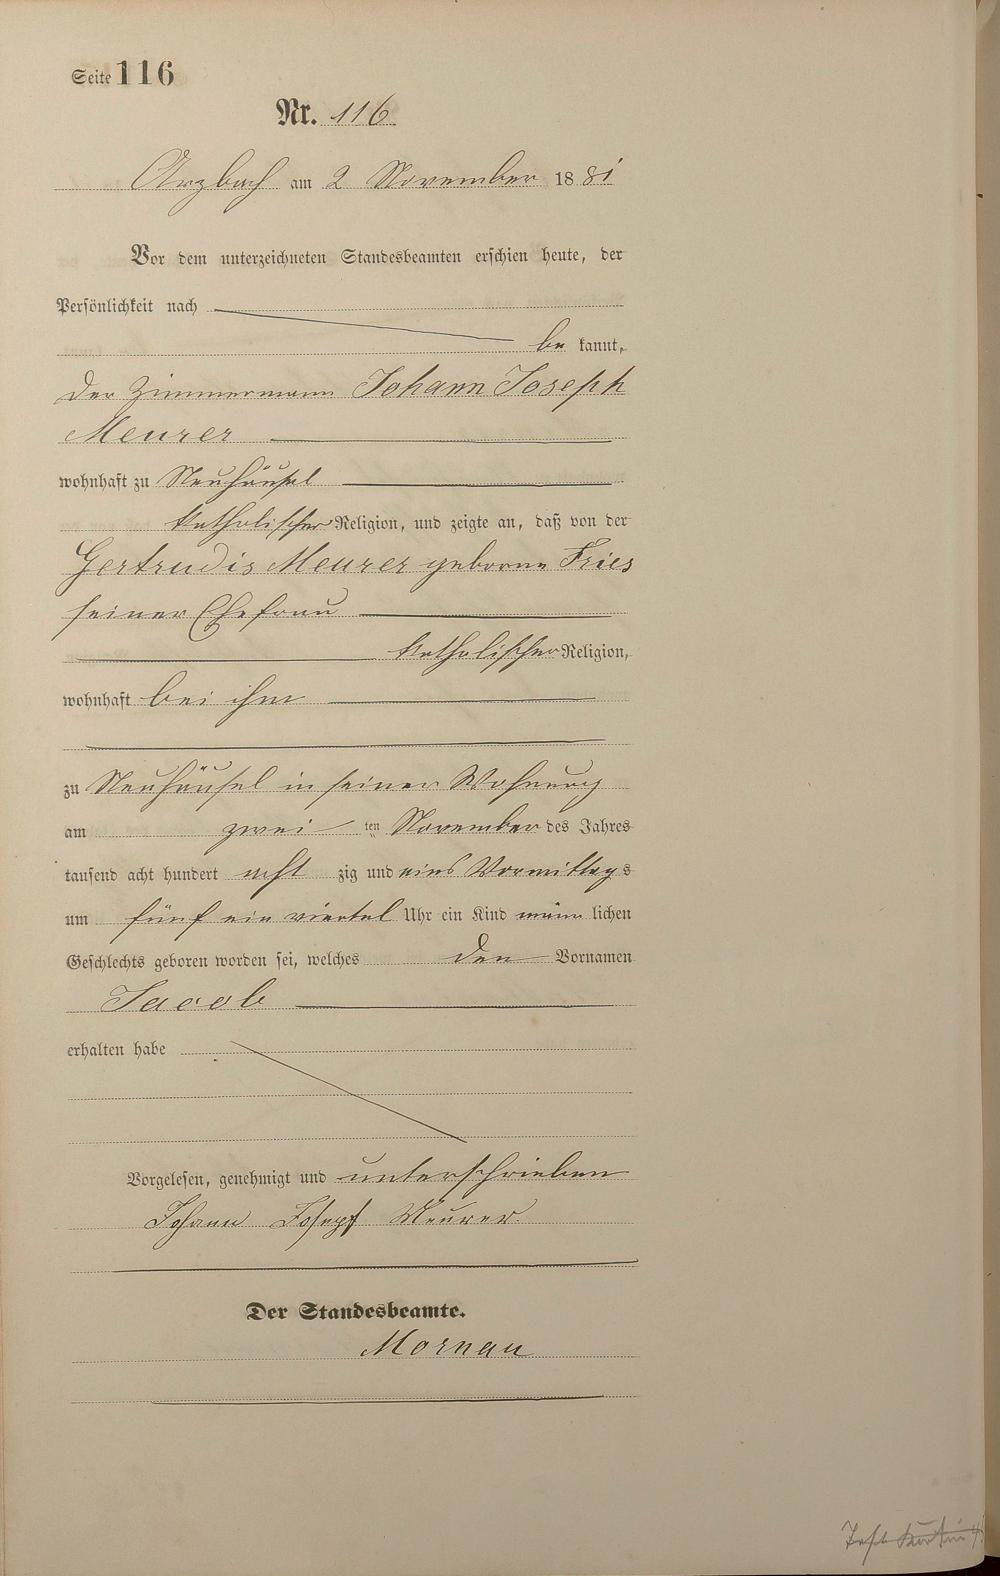 Seite 116
Nr. 116
Arzbach am 2 November 1881
Vor dem unterzeichneten Standesbeamten erschien heute, der
Persönlichkeit nach
be kannt,
der Zimmermann Johann Joseph
Meurer
wohnhaft zu Neuhäusel
katholischer Religion, und zeigte an, daß von der
Gertrudis Meurer geborne Fries
seiner Ehefrau
katholischer Religion,
wohnhaft bei ihm
zu Neuhäusel in seiner Wohnung
am zwei ten November des Jahres
tausend acht hundert acht zig und eins Vormittags
um fünf ein viertel Uhr ein Kind männ lichen
Geschlechts geboren worden sei, welches den Vornamen
Jacob
erhalten habe
Vorgelesen, genehmigt und unterschrieben
Johann Josepf Meurer
Der Standesbeamte.
Mornau